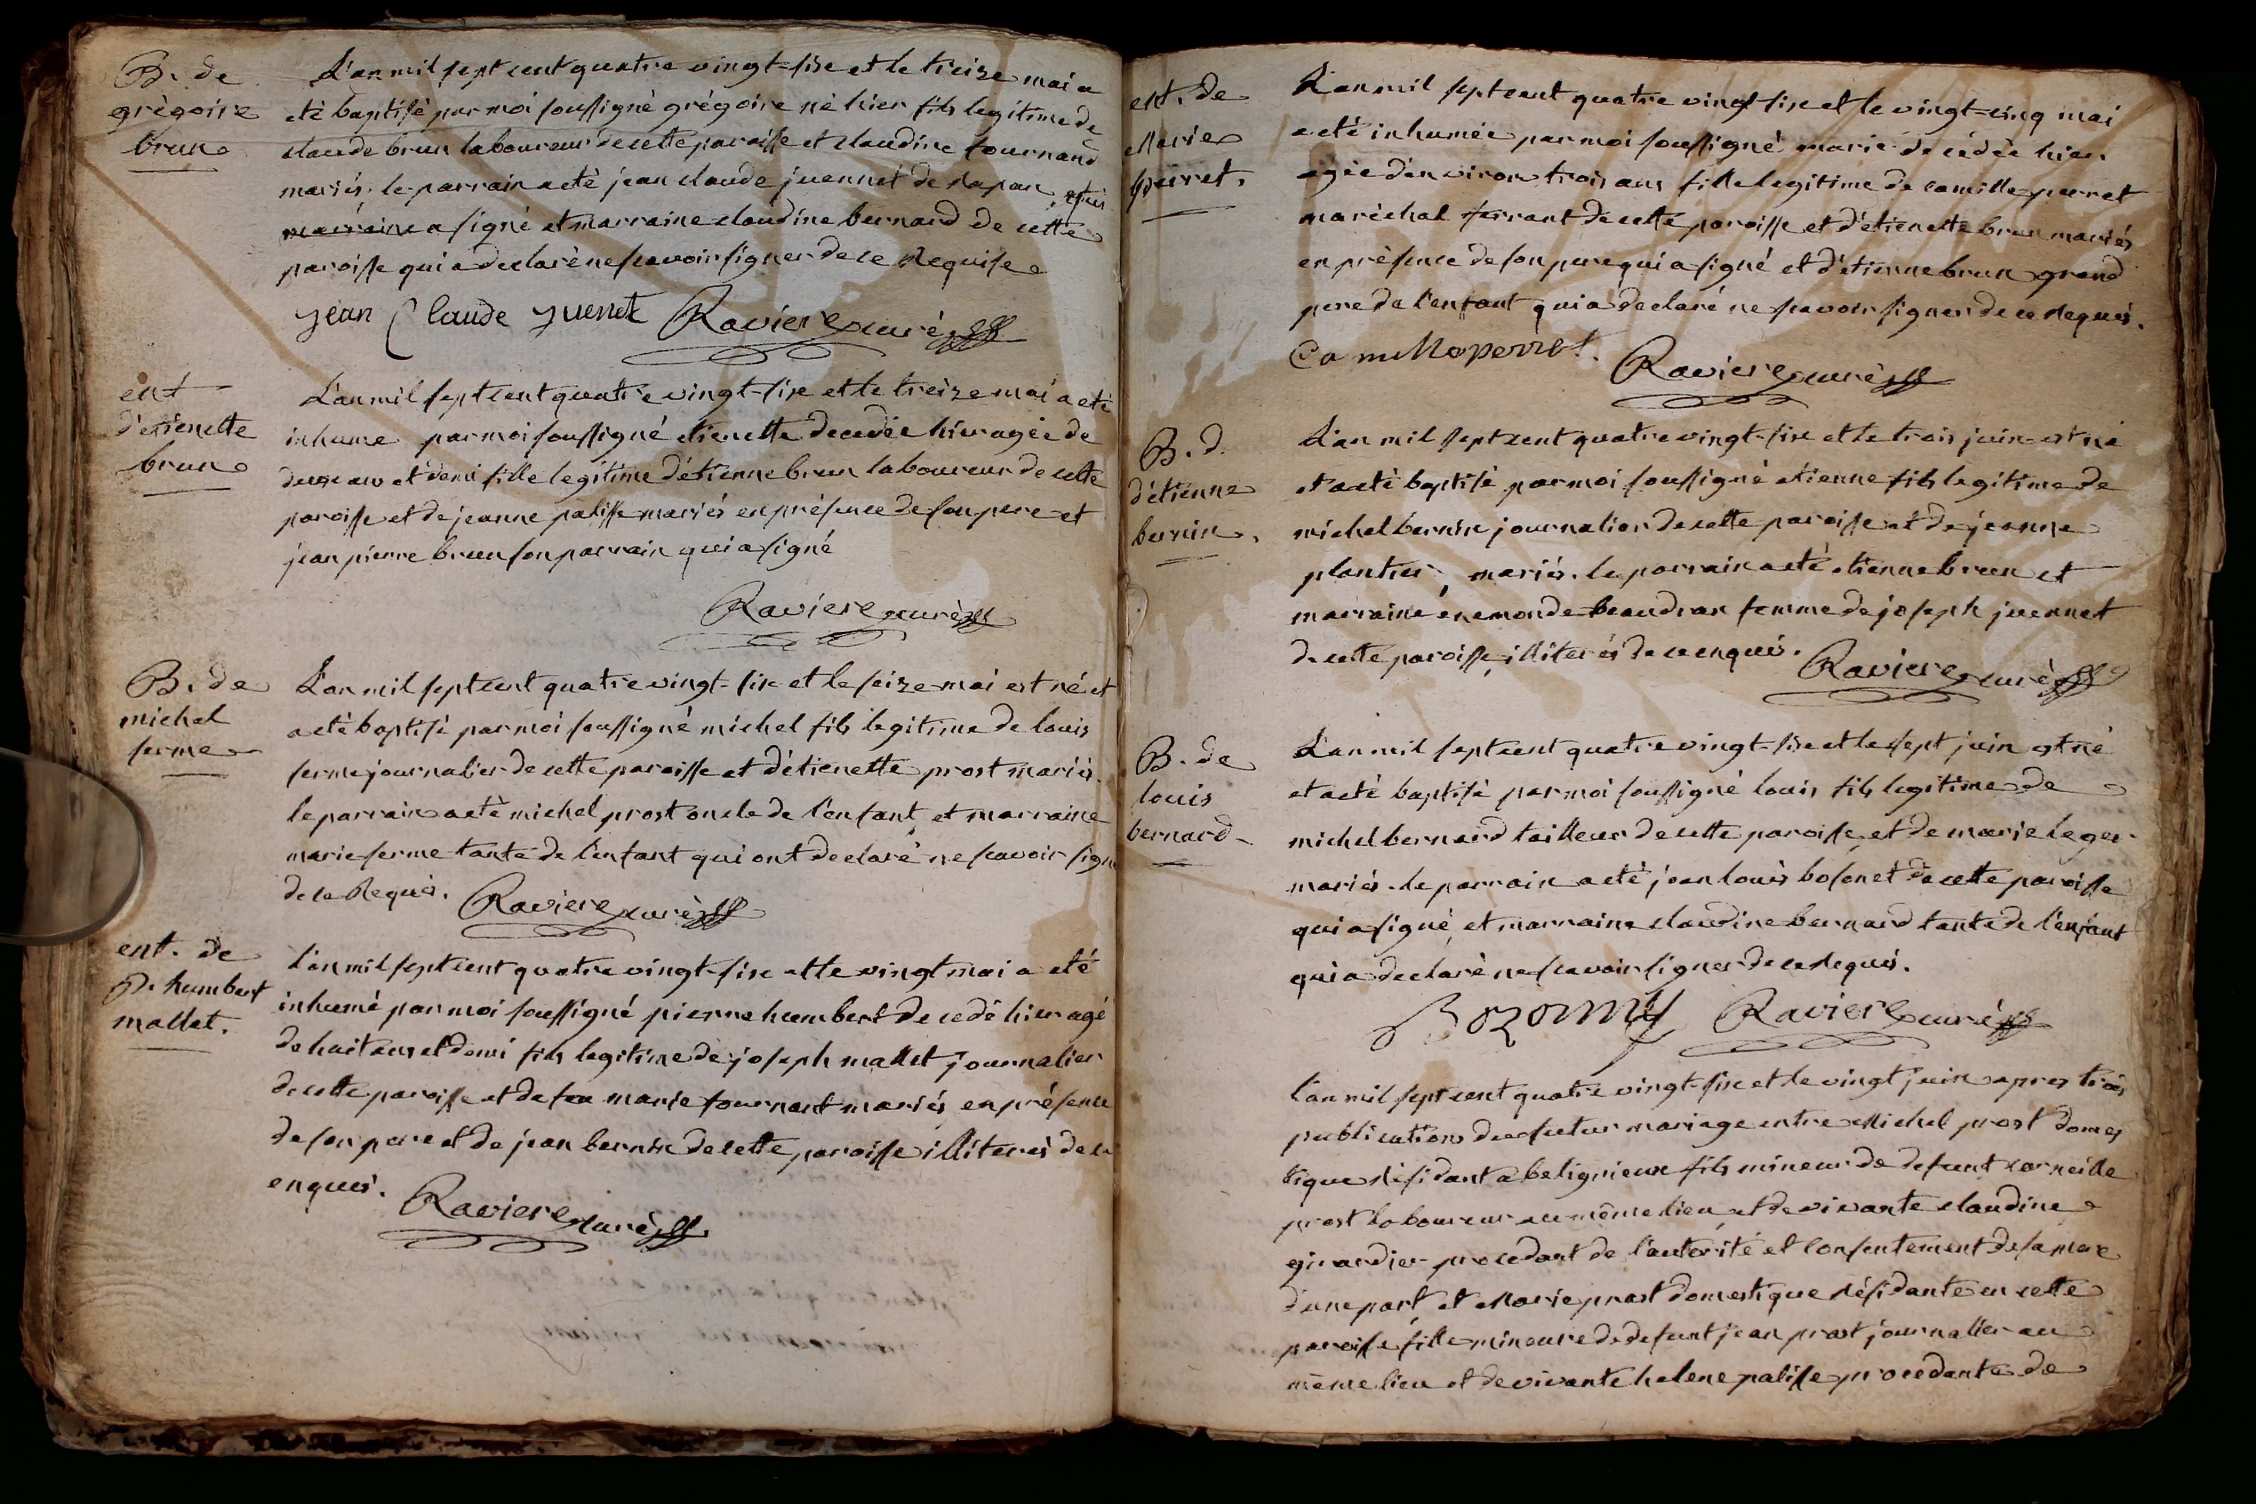 B. de
grégoire
brun
L'an mil sept cent quatre vingt-six et le treize mai a
eté baptisé par moi soussigné grégoire né hier fils legitime de
claude brun laboureur de cette paroisse et claudine fournand
mariés. le parrain a eté jean claude juennet de
marraine a signé et marraine claudine bernard de cette
paroisse qui a declaré ne scavoir signer de ce Requise
jean Claude juenet Raviere curé
ent
d'etienette
brun
L'an mil sept cent quatre vingt-six et le treize mai a eté
inhume par moi soussigné etienette decedée hier agée de
deux ans et demi fille legitime d'etienne brun laboureur de cette
paroisse et de jeanne palisse mariés en présence de son pere et
jean pierre brun son parrain qui a signé
Raviere curé
B. de
michel
ferme
L'an mil sept cent quatre vingt-six et le seize mai est né et
a eté baptisé par moi soussigné michel fils legitime de louis
ferme journalier de cette paroisse et d'etienette prost mariés.
le parrain a eté michel prost oncle de l'enfant et marraine
marie ferme tante de l'enfant qui ont declaré ne scavoir sign
de ce Requis. Raviere curé
ent. de
P. humbert
mallet.
L'an mil sept cent quatre vingt-six et le vingt mai a eté
inhumé par moi soussigné pierre humbert decedé hier agé
de huit ans et demi fils legitime de joseph mallet journalier
de cette paroisse et de feu marie fournant mariés en présence
de son pere et de jean bernin de cette paroisse illiterés de ce
enquis. Raviere curé
ent. de
Marie
perret.
L'an mil sept cent quatre vingt-six et le vingt-cinq mai
a eté inhumée par moi soussigné marie decedée hier
agée d'environ trois ans fille legitime de camille perret
maréchal ferrant de cette paroisse et d'etienette brun mariés
en présence de son pere qui a signé et d'etienne brun grand
pere de l'enfant qui a declaré ne scavoir signer de ce Requis.
Camille perret. Raviere curé
B. d.
d'étienne
bernin.
L'an mil sept cent quatre vingt-six et le trois juin est né
et a eté baptisé par moi soussigné etienne fils legitime de
michel bernin journalier de cette paroisse et de jeanne
plantier, mariés. le parrain a eté etienne brun et
marraine enemonde beaudran femme de joseph juennet
de cette paroisse, illiterés de ce enquis. Raviere curé
B. de
louis
bernard
L'an mil sept cent quatre vingt-six et le sept juin est né
et a eté baptisé par moi soussigné louis fils legitime de
michel bernard tailleur de cette paroisse et de marie leger
mariés. le parrain a eté jean louis bosonet de cette paroisse
qui a signé et marraine claudine bernard tante de l'enfant
qui a declaré ne scavoir signer de ce Requis.
Raviere curé
L'an mil sept cent quatre vingt-six et le vingt juin apres trois
publications du futur mariage entre Michel prost domes
tique résidant a beligneux fils mineur de defunt corneille
prost laboureur au même lieu et de vivante claudine
girardier procedant de l'autorité et consentement de sa mere
d'une part, et Marie prost domestique résidante en cette
paroisse fille mineure de defunt jean prost journalier au
même lieu et de vivante helene palisse procedante de